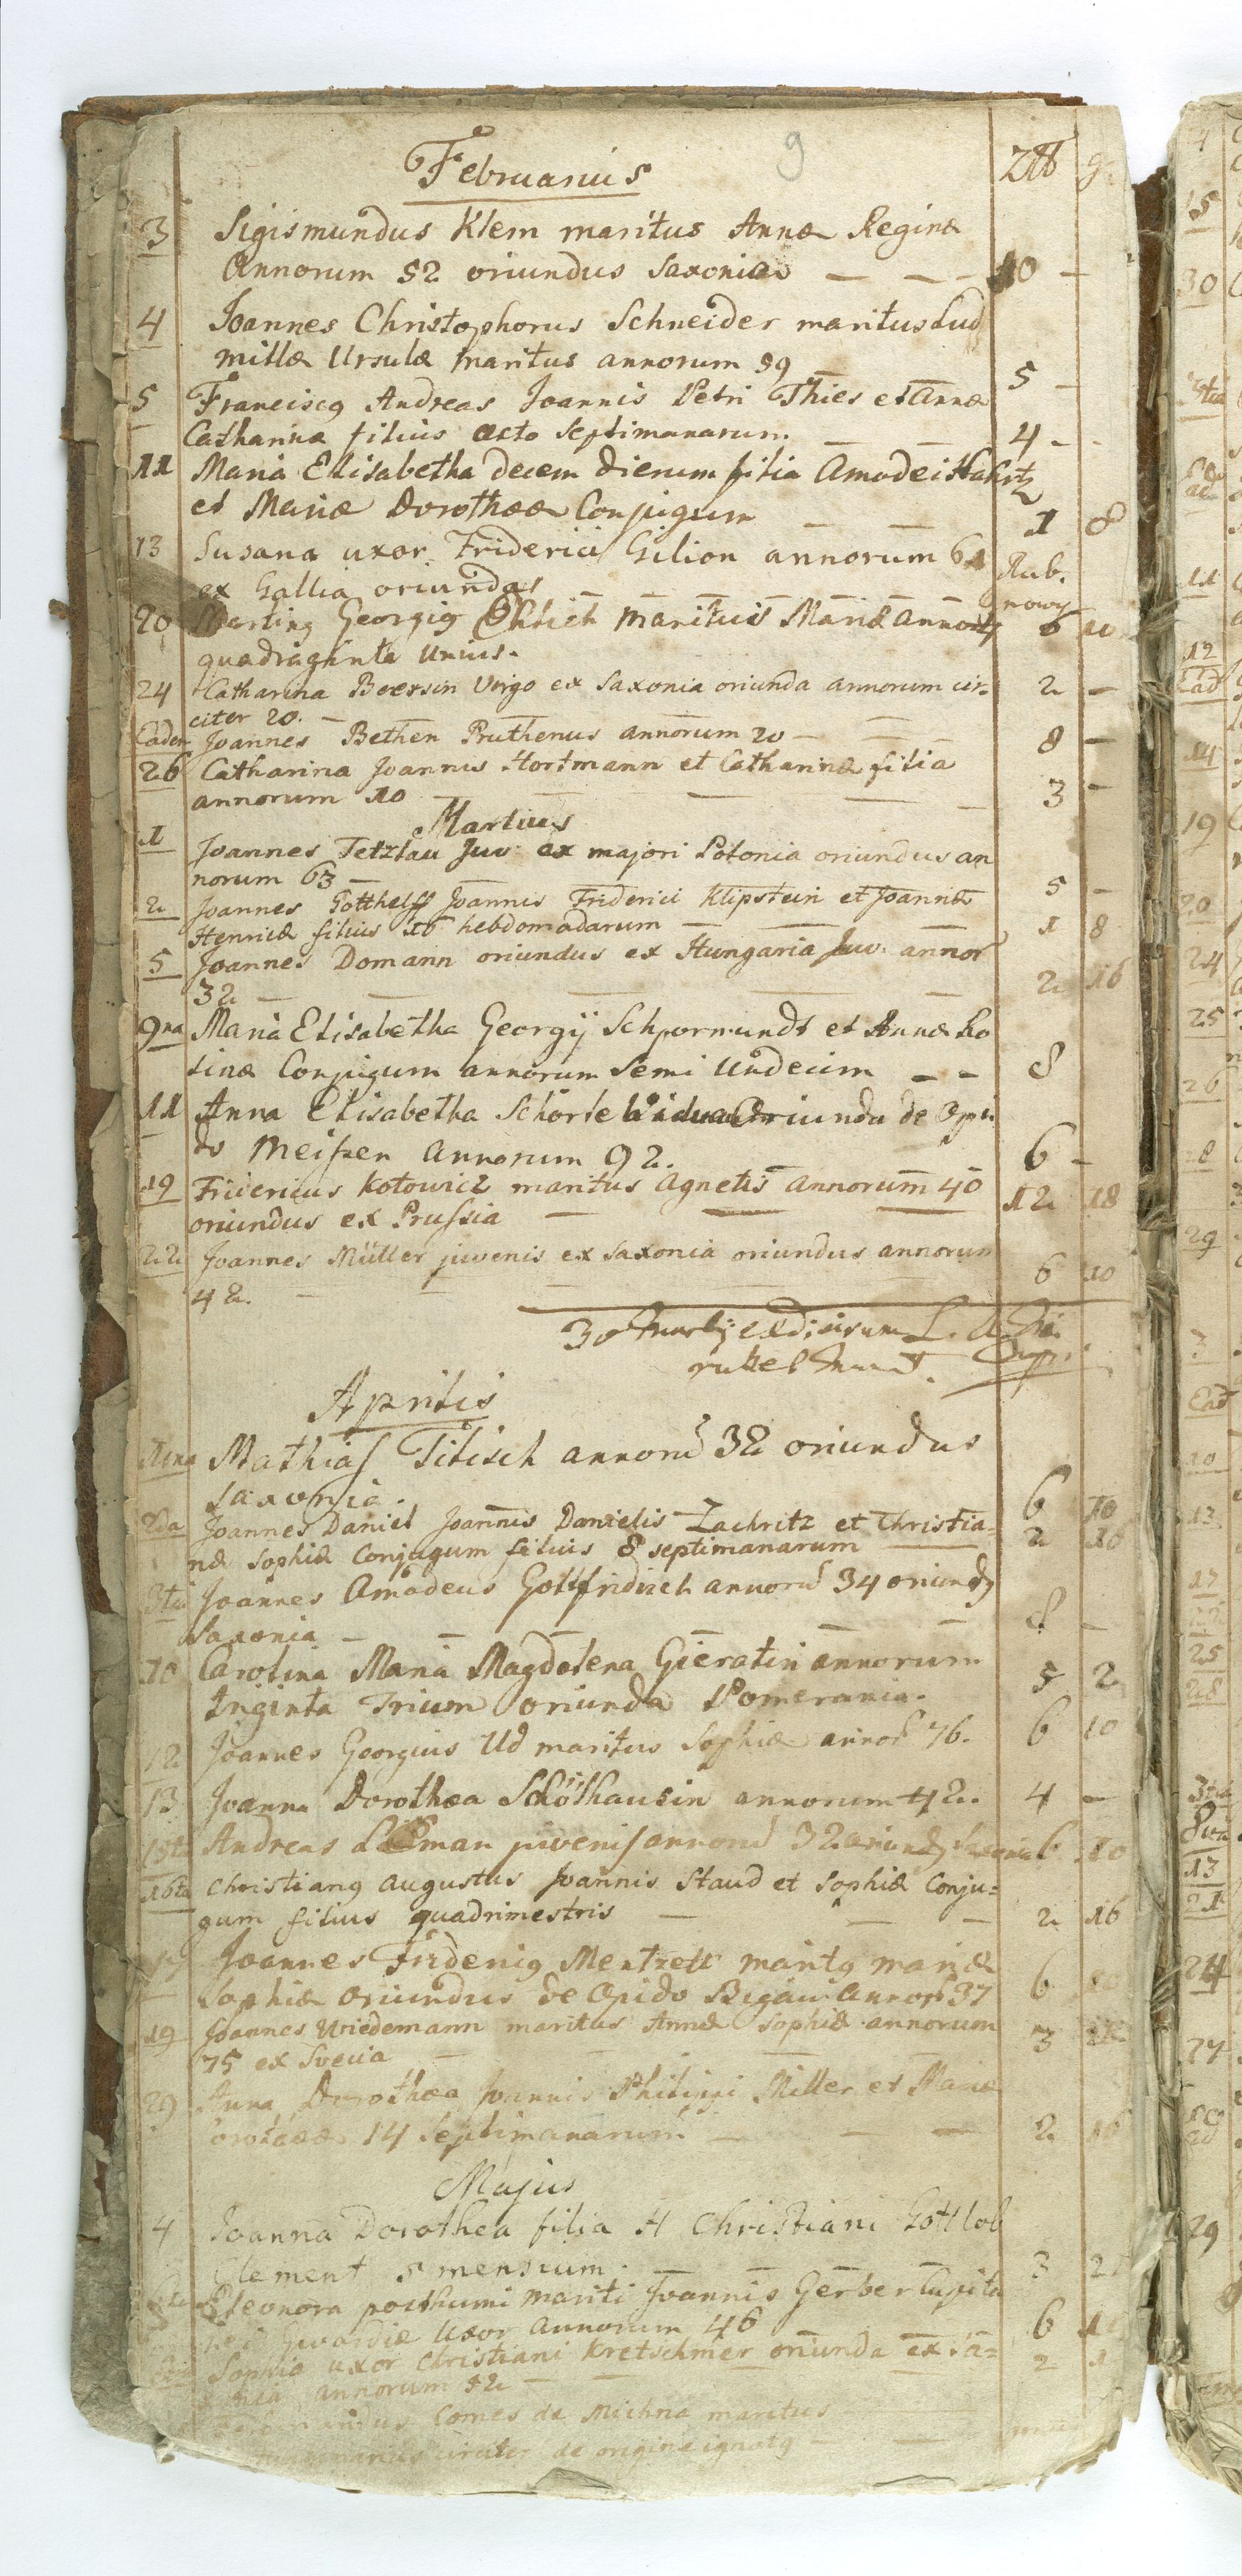 9
Februarius
3 Sigismundus Klem maritus Annæ Reginæ
Annorum 52 oriundus Saxoniæ — — — 10 —
4 Joannes Christophorus Schneider maritus Lud
millæ Ursulæ maritus annorum 59 5 —
5 Franciscq Andreas Joannis Petri Thies et Annæ
Catharinæ filius octo septimanarum. — — 4 -
11 Maria Elisabetha decem dierum filia Amodei
et Mariæ Dorotheæ Conjugum — — 1 8
13 Susana uxor Friderici Gilion annorum 61 Rub.
ex Gallia oriunda — — — nowy
20 Georgig Ehlich maritus Mariæ annorq 6 10
quadraginta unius.
24 Catharina Beersin Virgo ex Saxonia oriunda annorum cir= 2 —
citer 20. —
Eadem Joannes Bethen Pruthenus annorum 20 — 8 —
26 Catharina Joannis Hortmann et Catharinæ filia
annorum 10 — — — — — 3 -
Martius
1 Joannes Tetzlau Juv. ex majori Polonia oriundus an
norum 63 — 5 —
2 Joannes Gotthelff Joannis Friderici Klipstein et Joannæ
Henricæ filius 16 hebdomadarum — — 1 8
5 Joannes Domann oriundus ex Hungaria Juv. annor
32 — — — — — 2 16
9na Maria Elisabetha Georgij Schpormundt et Annæ Ro
sinæ Conjugum annorum Semi Undecim — - 8
11 Anna Elisabetha Schörle Vidua Oriunda de Opi
do Meißen annorum 92. 6 -
19 Fridericus Kotowicz maritus Agnetis annorum 40
oriundus ex Prussia — — — 12 18
22 Joannes Müller juvenis ex Saxonia oriundus annorum
42. — — — 6 10
30
Aprilis
Mathias Titisch annorū 32 oriundus
Saxonia. 6 10
2da Joannes Daniel Joannis Danielis Zachritz et Christia=
næ Sophiæ Conjugum filius 8 septimanarum — 2 16
3tia Joannes Amadeus Gottfridisch annorū 34 oriundq
Saxonia — — — — 8 -
10 Carolina Maria Magdolena Gieratin annorum
triginta Trium oriunda Pomerania. 5 2
12 Joannes Georgius Ud maritus Sophiæ annor 76. 6 10
13 Joanna Dorothea Schölhausin annorum 42. 4 —
15ta Andreas juvenis annorū 32 6 10
16ta Christianq Augustus Joannis Staud et Sophiæ Conju=
gum filius quadrimestris — — — 2 16
17 Joannes Fridericq Mentzell maritq mariæ
Sophiæ Oriundus de Opido Bigau Annorū 37 6 10
19 Joannes Wiedemann maritus Annæ Sophiæ annorum
75 ex Svecia — — — 3
29 Anna Dorothea Joannis Philippi Miller et Mariæ
14 Septimanarum — — — 2 16
Majus
4 Joanna Dorothea filia H Christiani Gottlob
Clement 5 mensium. — — 3
Eleonora posthumi mariti Joannis Gerber
Gwardiæ Uxor Annorum 46 6
Sophia uxor Christiani Kretschmer oriunda ex Sa=
annorum 52 — — 2
Comes de Michna maritus
circiter de origine ignotq —